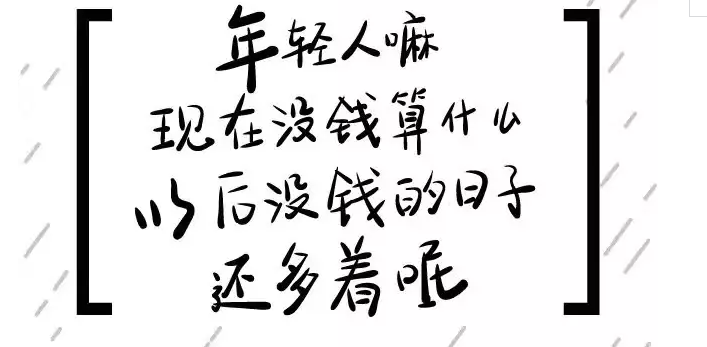 年轻人嘛
现在没钱算什么
以后没钱的日子
还多着呢